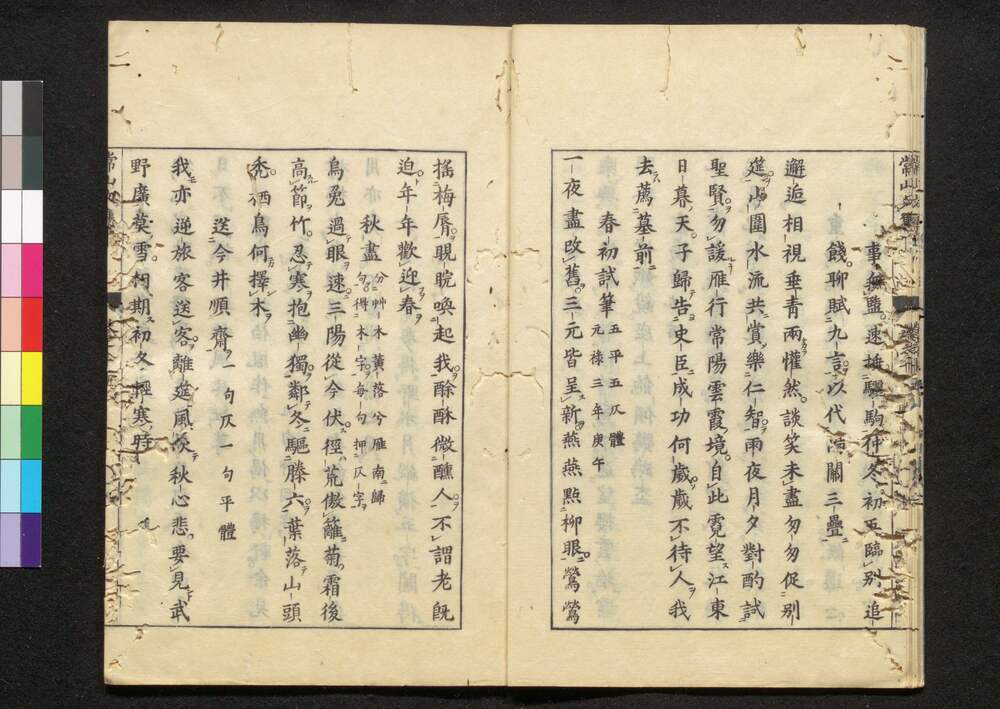 事無盬速装驪駒仲冬初五臨別追
餞聊賦九言以代陽關三疊
邂逅相視垂青兩懽然談笑未盡勿勿促別
筵山圍水流共賞樂仁智雨夜月夕對酌試
聖賢勿諼雁行常陽雲霞境自此霓望江東
日暮天子歸告史臣成功何歲歲不待人我
去薦墓前
春初試筆 五平五仄體
元祿三年庚午
一夜盡改舊三元皆呈新燕燕點柳眼鶯鶯
搖梅脣睍睆喚起我酴酥微醺人不謂老既
迫年年歡迎春
秋盡 分艸木黃落兮雁南歸
句得木字每句押仄字
烏兔過眼速三陽從今伏徑荒傲籬菊霜後
高節竹忍寒抱幽獨鄰冬驅滕六葉落山頭
禿栖鳥何擇木
送今井順齋 一句仄一句平體
我亦逆旅客送客離筵風淡秋心悲要見武
野廣莫雪相期初冬輕寒時